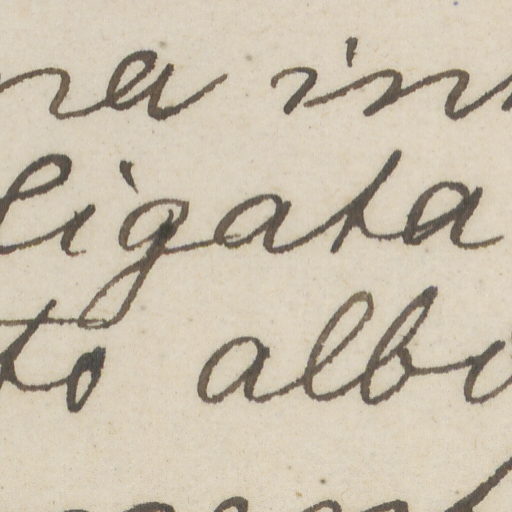 na in
ligata
to alb